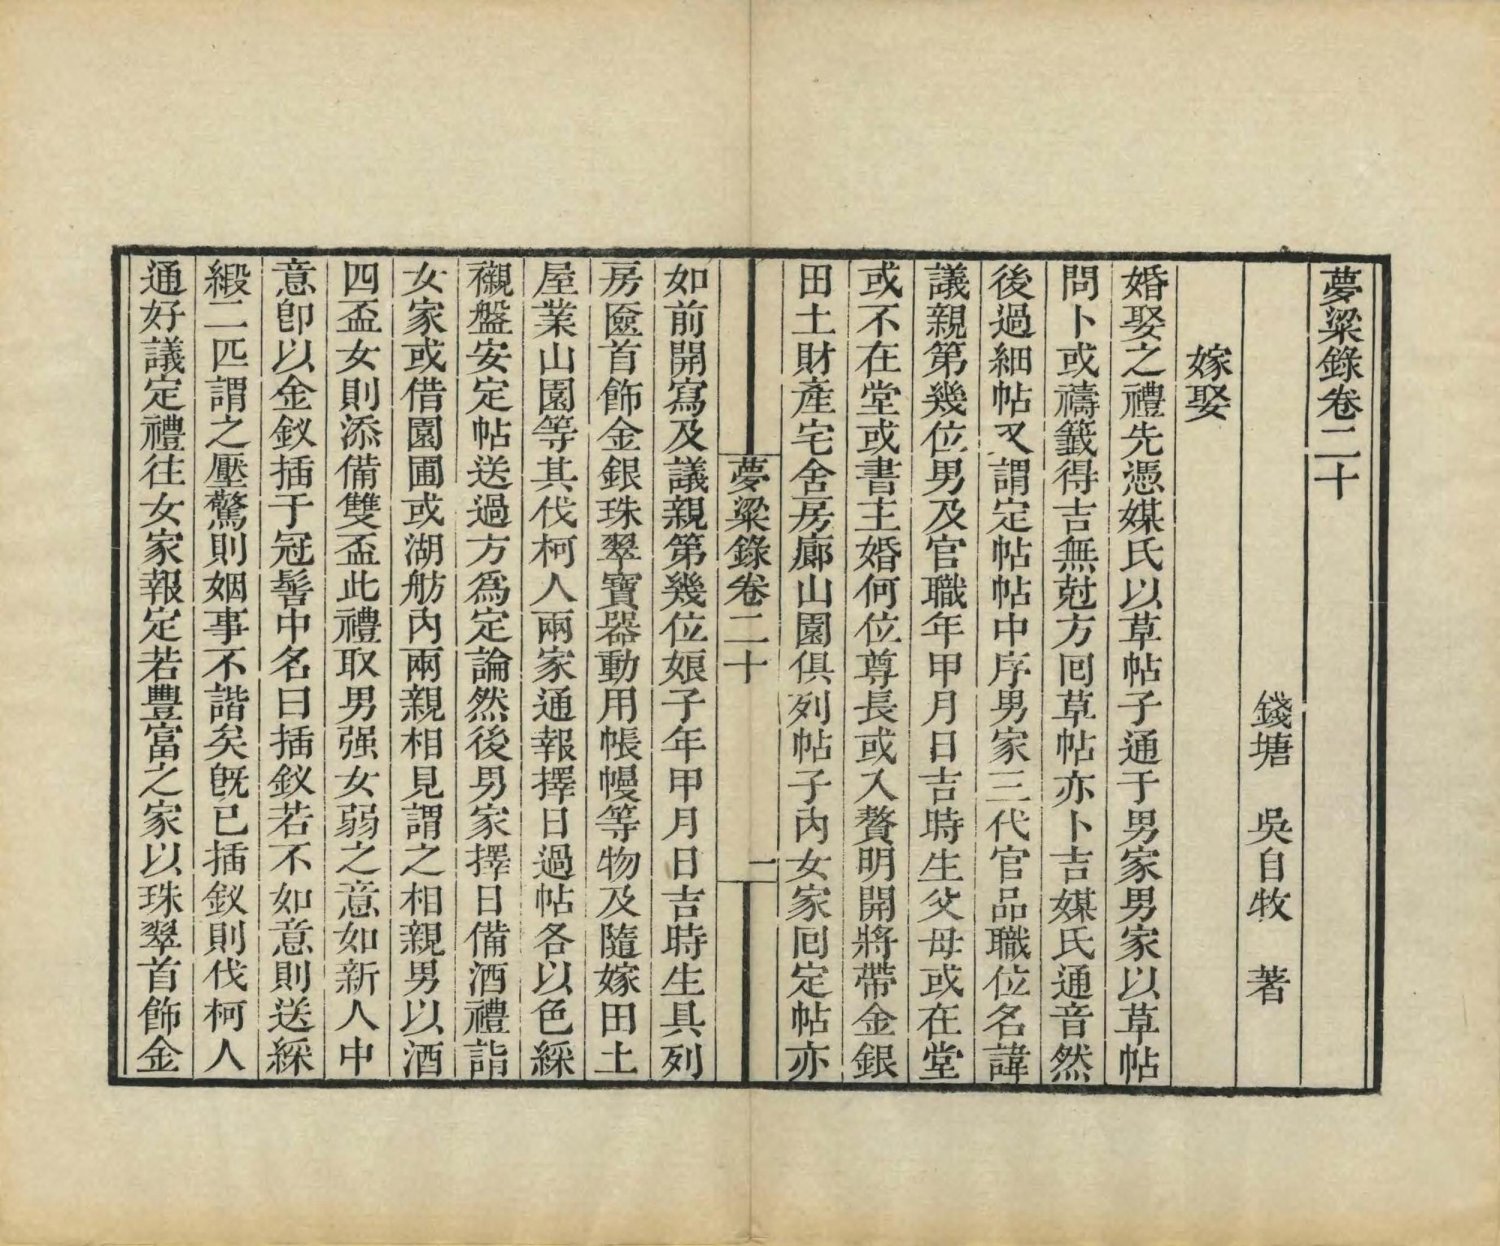 夢粱錄卷二十
錢塘 吳自牧 著
嫁娶
婚娶之禮先憑媒氏以草帖子通于男家男家以草帖
問卜或禱籤得吉無尅方回草帖亦卜吉媒氏通音然
後過細帖又謂定帖帖中序男家三代官品職位名諱
議親第幾位男及官職年甲月日吉時生父母或在堂
或不在堂或書主婚何位尊長或入贅明開將帶金銀
田土財產宅舍房廊山園俱列帖子內女家回定帖亦
夢粱錄卷二十
一
如前開寫及議親第幾位娘子年甲月日吉時生具列
房匳首飾金銀珠翠寶器動用帳幔等物及隨嫁田土
屋業山園等其伐柯人兩家通報擇日過帖各以色綵
襯盤安定帖送過方爲定論然後男家擇日備酒禮詣
女家或借園圃或湖舫內兩親相見謂之相親男以酒
四盃女則添備雙盃此禮取男强女弱之意如新人中
意卽以金釵插于冠髻中名曰插釵若不如意則送綵
緞二匹謂之壓驚則姻事不諧矣旣已插釵則伐柯人
通好議定禮往女家報定若豐富之家以珠翠首飾金